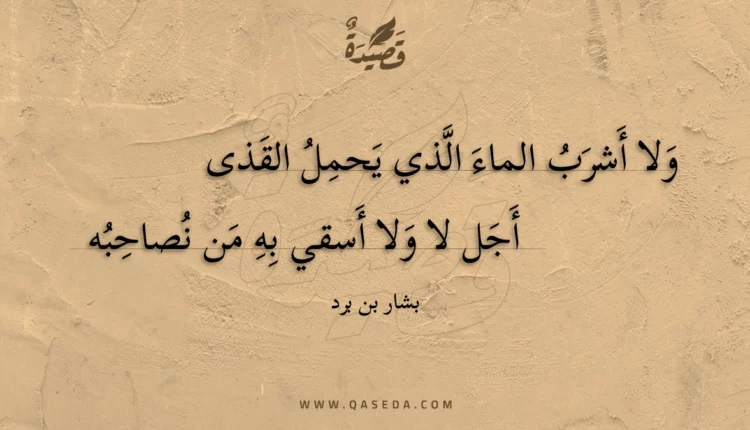 قَصِيْدَةٌ
وَلا أَشرَبُ الماءَ الَّذي يَحمِلُ القَذى
أَجَل لا وَلا أَسقي بِهِ مَن نُصاحِبُه
بشار بن برد
WWW.QASEDA.COM